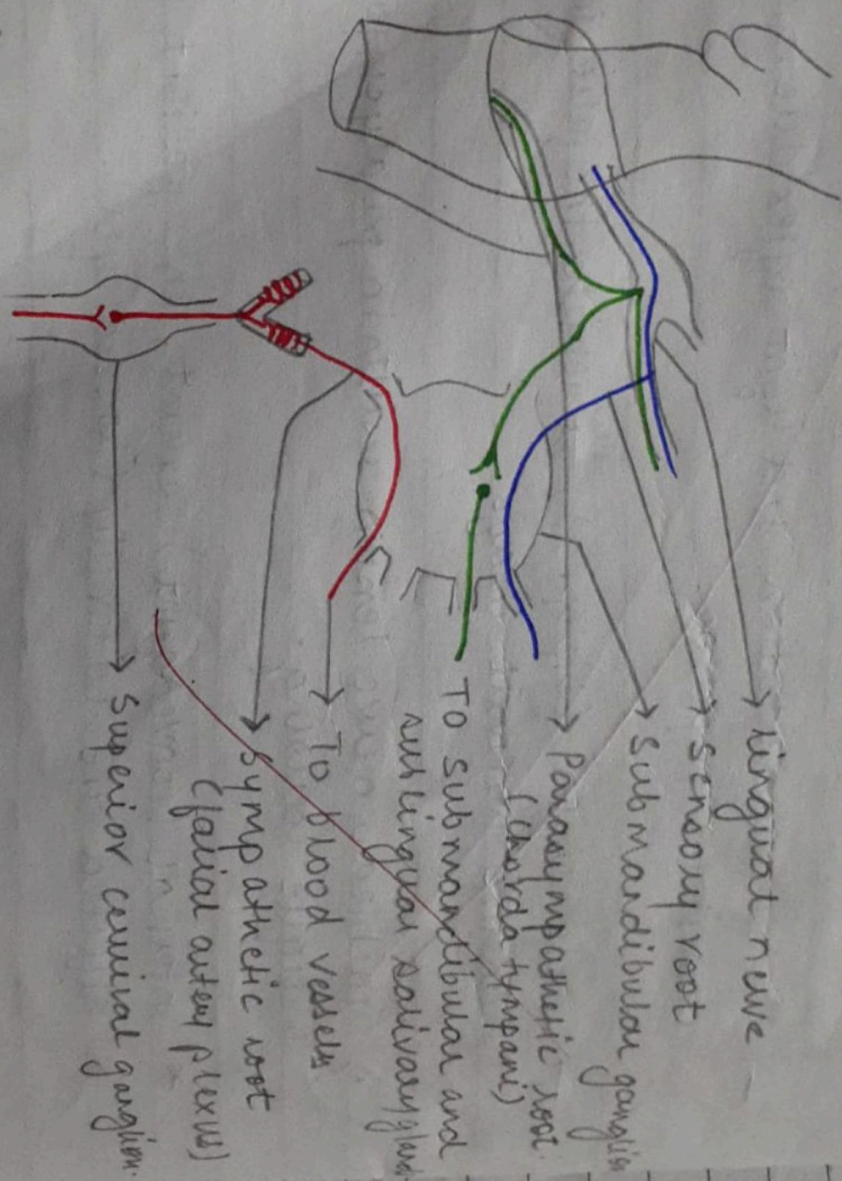 lingual nerve
sensory root
submandibular ganglion
Parasympathetic root
(chorda tympani)
To submandibular and
sublingual salivary glands
To blood vessels
sympathetic root
(facial artery plexus)
Superior cervical ganglion.